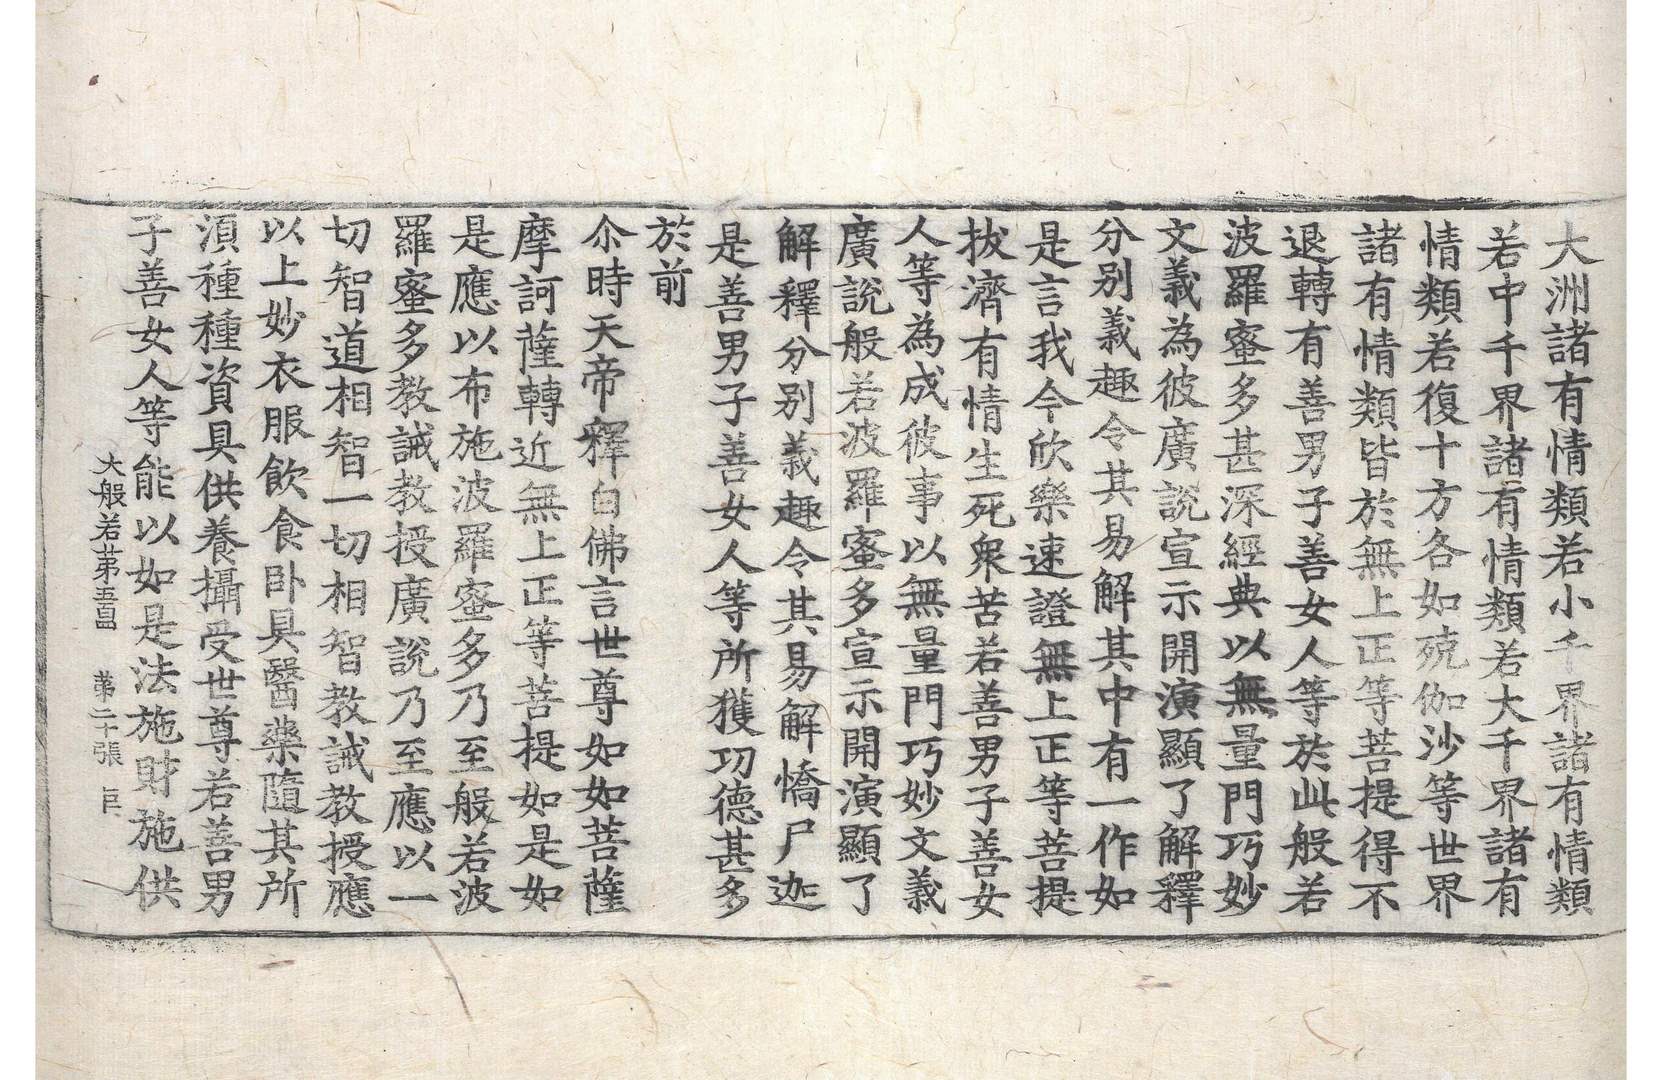 大洲諸有情類若小千界諸有情類
若中千界諸有情類若大千界諸有
情類若復十方各如殑伽沙等世界
諸有情類皆於無上正等菩提得不
退轉有善男子善女人等於此般若
波羅蜜多甚深經典以無量門巧妙
文義為彼廣說宣示開演顯了解釋
分別義趣令其易解其中有一作如
是言我今欣樂速證無上正等菩提
拔濟有情生死衆苦若善男子善女
人等為成彼事以無量門巧妙文義
廣說般若波羅蜜多宣示開演顯了
解釋分別義趣令其易解憍尸迦
是善男子善女人等所獲功德甚多
於前
尒時天帝釋白佛言世尊如如菩薩
摩訶薩轉近無上正等菩提如是如
是應以布施波羅蜜多乃至般若波
羅蜜多教誡教授廣說乃至應以一
切智道相智一切相智教誡教授應
以上妙衣服飲食卧具醫藥隨其所
湏種種資具供養攝受世尊若善男
子善女人等能以如是法施財施供
大般若苐五百四 苐二十張